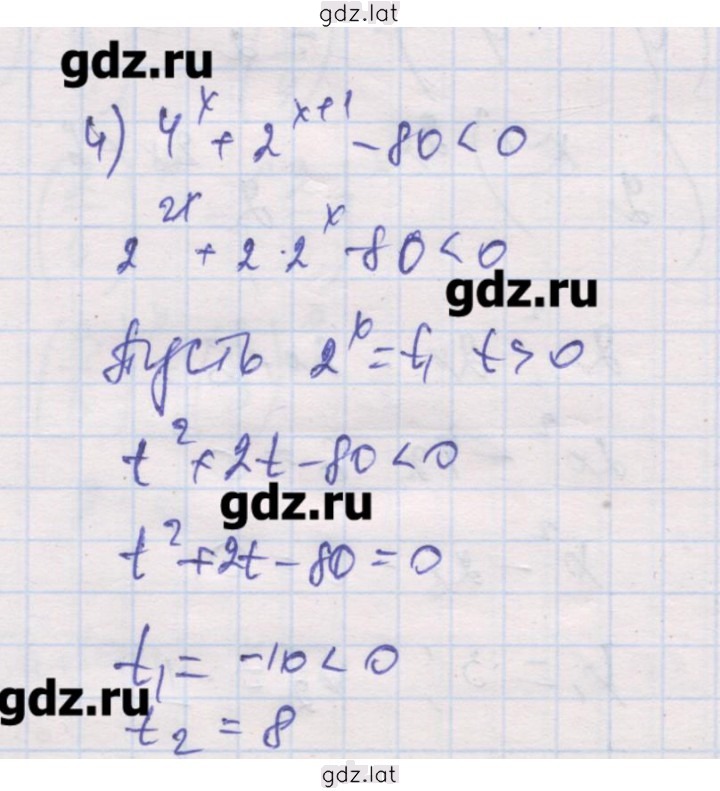 gdz.lat
gdz.ru
4) 4^x + 2^{x+1} - 80 < 0
2^{2x} + 2 · 2^x - 80 < 0
gdz.ru
Пусть 2^x = t, t > 0
t^2 + 2t - 80 < 0
gdz.ru
t^2 + 2t - 80 = 0
t_1 = -10 < 0
gdz.ru
t_2 = 8
gdz.lat